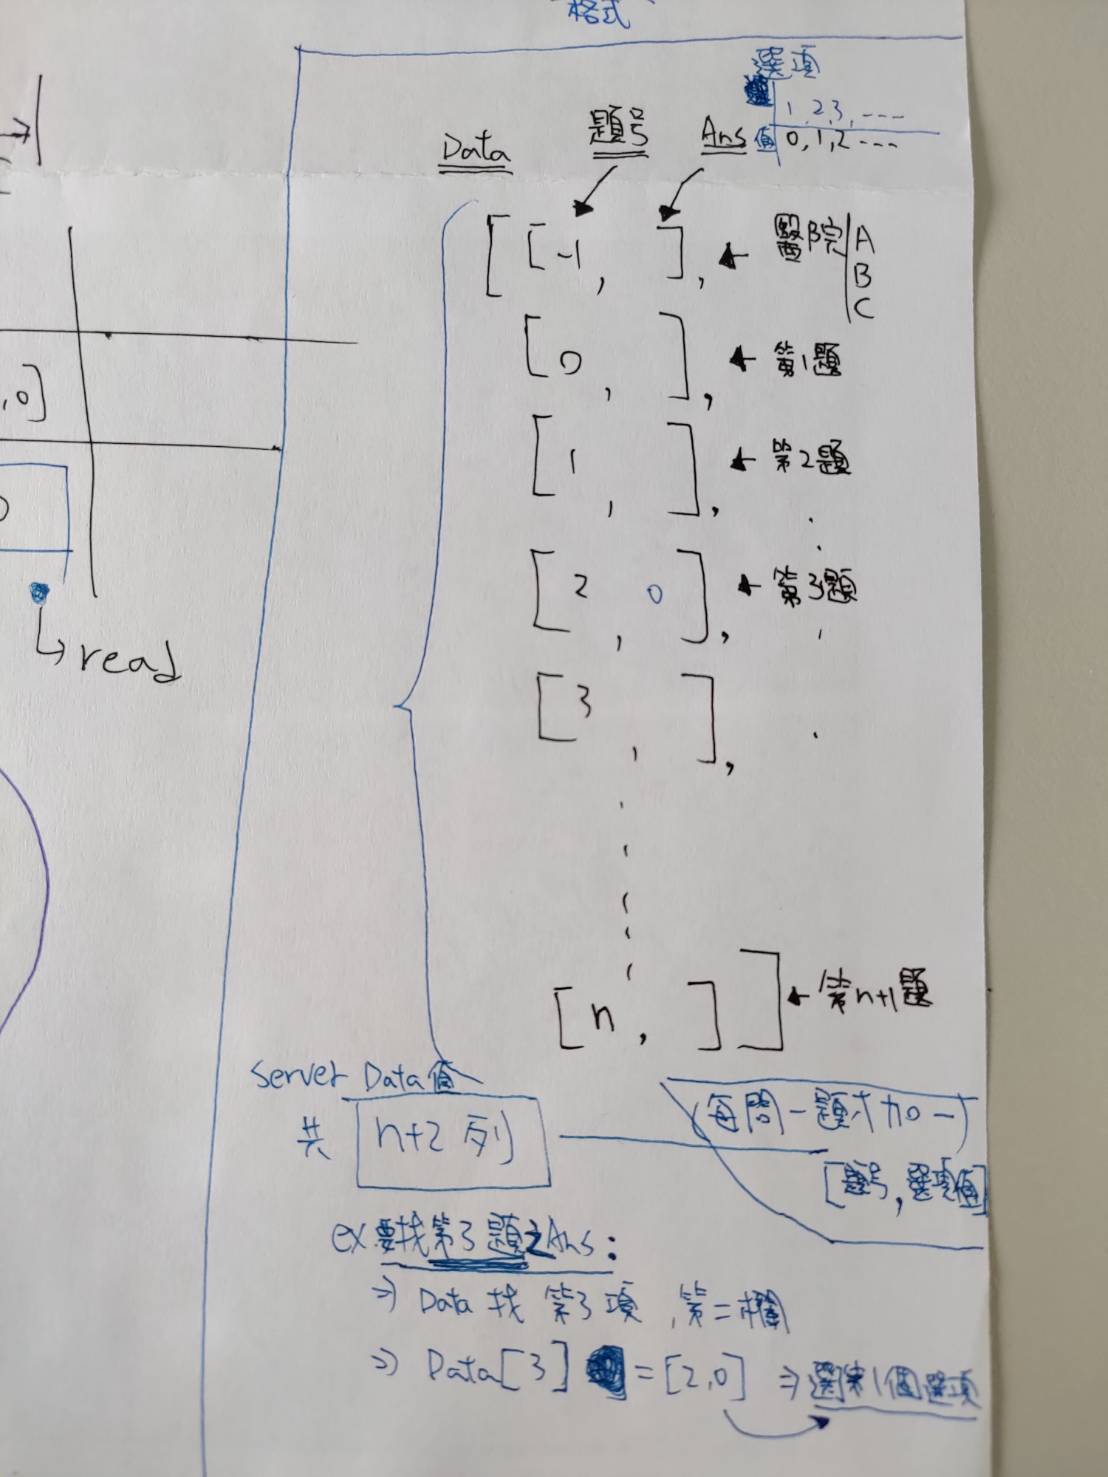 格式
選項
1, 2, 3, ----
值 0, 1, 2 ---
Data 題号 Ans
[ [-1, ], ← 醫院 A
B
C
[0, ], ← 第1題
[1, ], ← 第2題
[2, 0], ← 第3題
[3, ],
[n, ] ] ← 第n+1題
,0]
→ read
Server Data值
共 n+2 列
(每問一題才加一)
[題号, 選項值]
ex 要找第3題之Ans:
⇒ Data 找 第3項, 第二欄
⇒ Data[3] = [2,0] ⇒ 選第1個選項